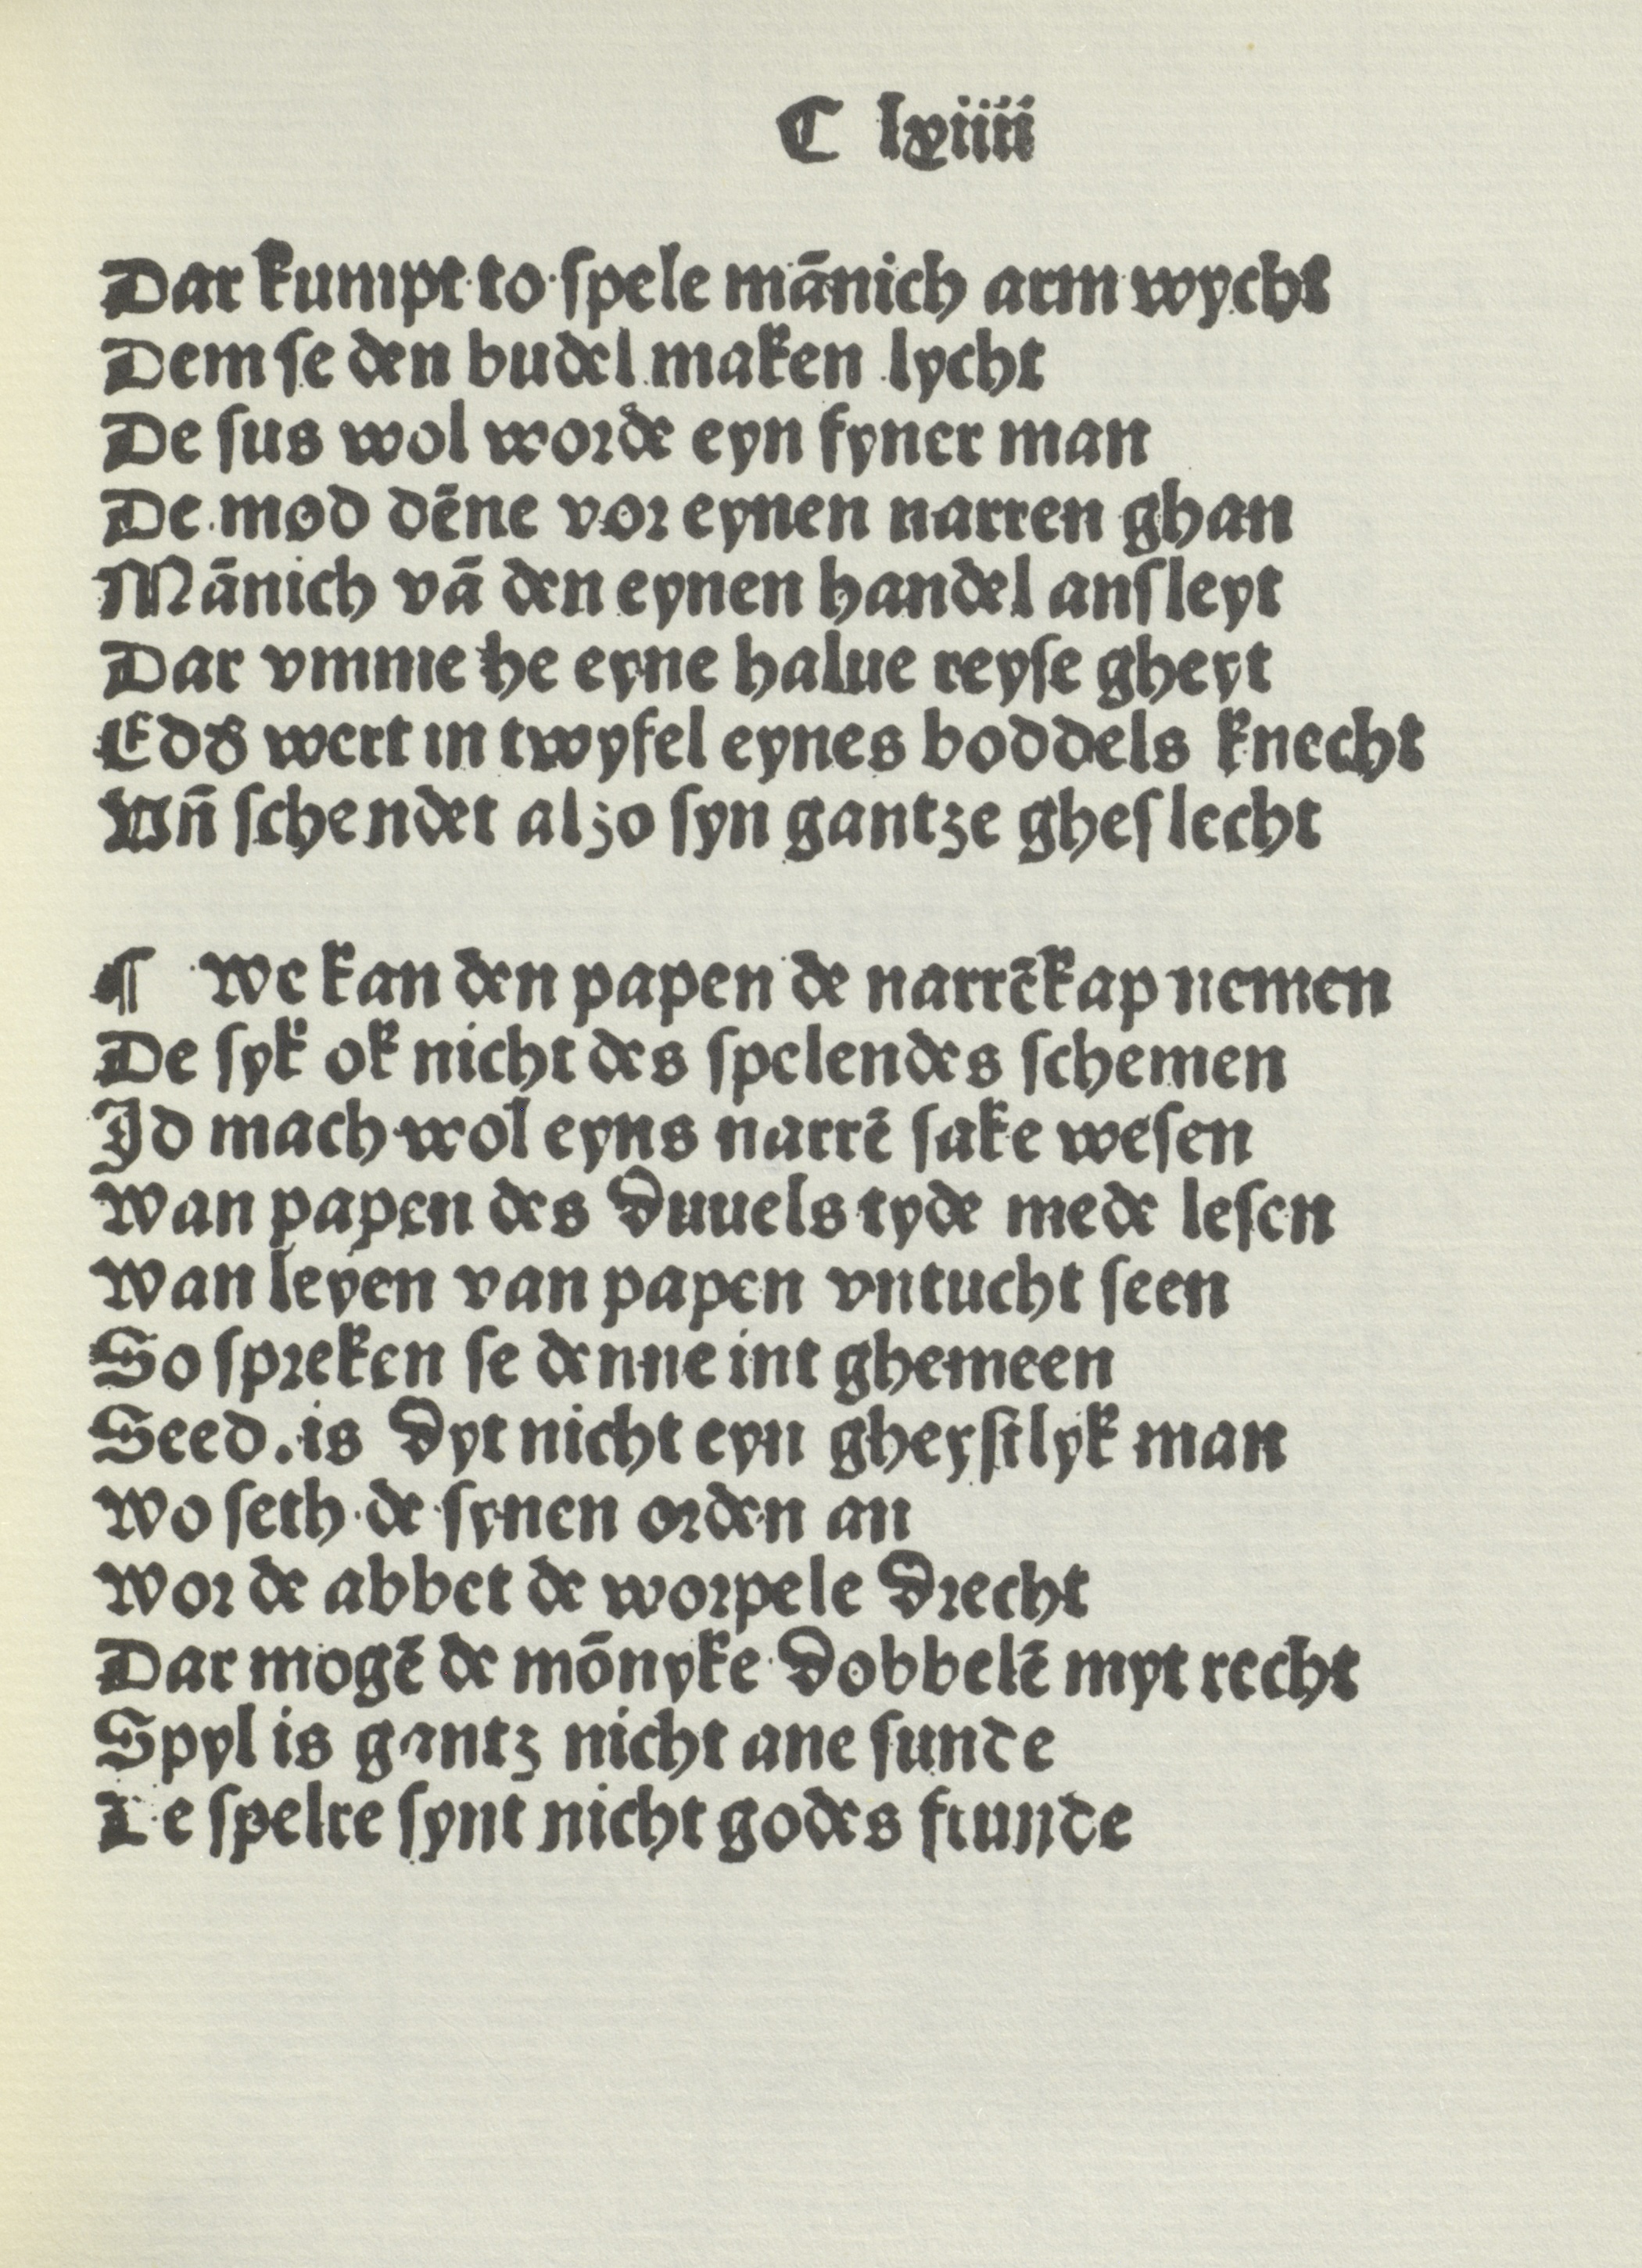 C lxiiii
Dar kumpt to ſpele mānich arm wycht
Dem ſe den budel maken lycht
De ſus wol worde eyn fyner man
De mod dēne vor eynen narren ghan
Mānich vā den eynen handel anſleyt
Dar vmme he eyne halue reyſe gheyt
Edð wert in twyfel eynes boddels knecht
Vn̄ ſchendet alzo ſyn gantze gheſlecht
¶ We kan den papen de narrēkap nemen
De ſyk ok nicht des ſpelendes ſchemen
Jd mach wol eyns narrē ſake weſen
Wan papen des Duuels tyde mede leſen
Wan leyen van papen vntucht ſeen
So ſpreken ſe denne int ghemeen
Seed. is Dyt nicht eyn gheyſtlyk man
Wo ſeth de ſynen orden an
Wor de abbet de worpele Drecht
Dar mogē de mōnyke Dobbelē myt recht
Spyl is gantz nicht ane ſunde
De ſpelre ſynt nicht godes frunde